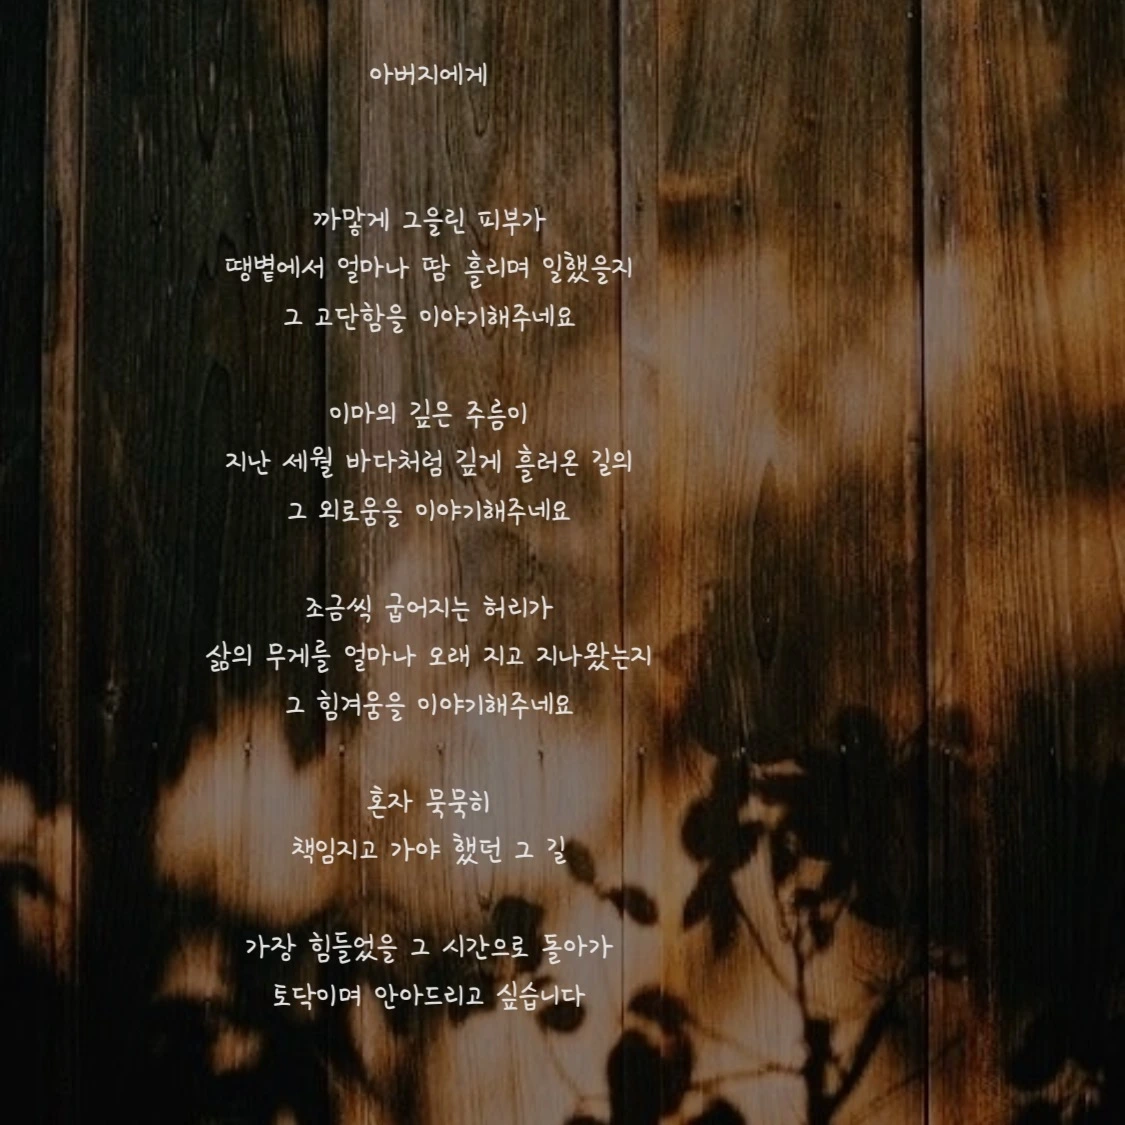 아버지에게
까맣게 그을린 피부가
땡볕에서 얼마나 땀 흘리며 일했을지
그 고단함을 이야기해주네요
이마의 깊은 주름이
지난 세월 바다처럼 깊게 흘러온 길의
그 외로움을 이야기해주네요
조금씩 굽어지는 허리가
삶의 무게를 얼마나 오래 지고 지나왔는지
그 힘겨움을 이야기해주네요
혼자 묵묵히
책임지고 가야 했던 그 길
가장 힘들었을 그 시간으로 돌아가
토닥이며 안아드리고 싶습니다